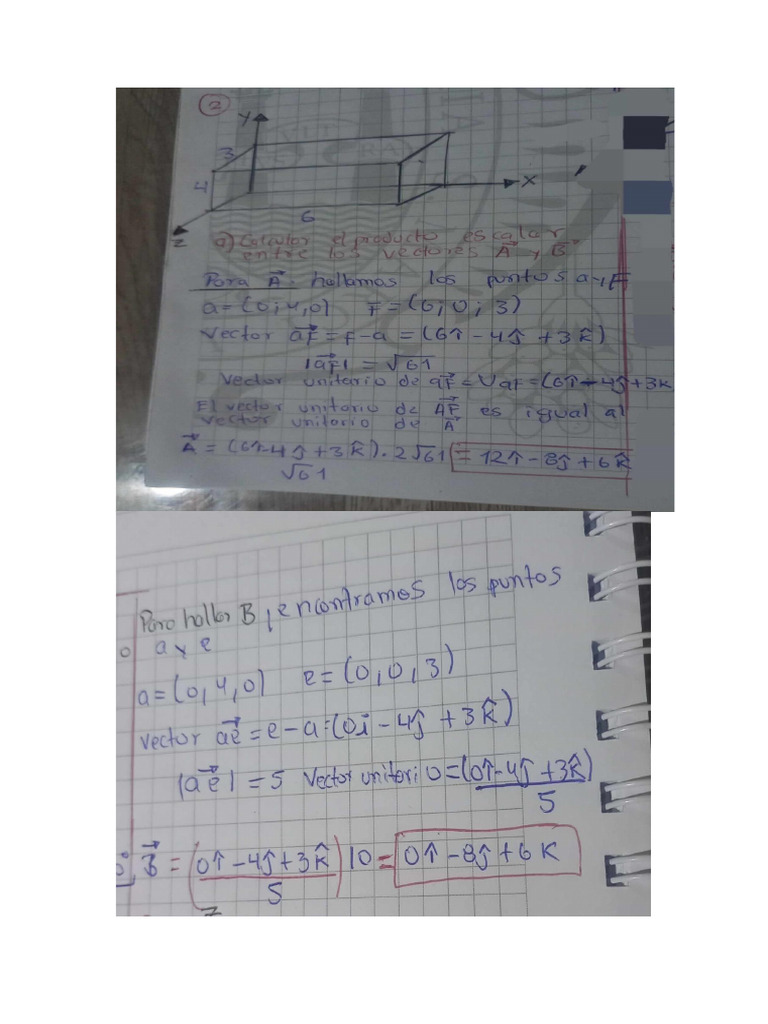 2
Y
3
4
X
6
Z
a) Calcular el producto escalar
entre los vectores A y B
Para A: hallamos los puntos a y F
a = (0, 4, 0) F = (6, 0, 3)
Vector aF = F - a = (6î - 4ĵ + 3k̂)
|aF| = √61
Vector unitario de aF = UaF = (6î - 4ĵ + 3k
El vector unitario de AF es igual al
vector unitario de A
A = (6î - 4ĵ + 3k̂) · 2√61 = 12î - 8ĵ + 6k̂
√61
Para hallar B, encontramos los puntos
a y e
a = (0, 4, 0) e = (0, 0, 3)
vector ae = e - a = (0i - 4ĵ + 3k̂)
|ae| = 5 Vector unitario = (0î - 4ĵ + 3k̂)
5
B = (0î - 4ĵ + 3k̂) 10 = 0î - 8ĵ + 6K
5